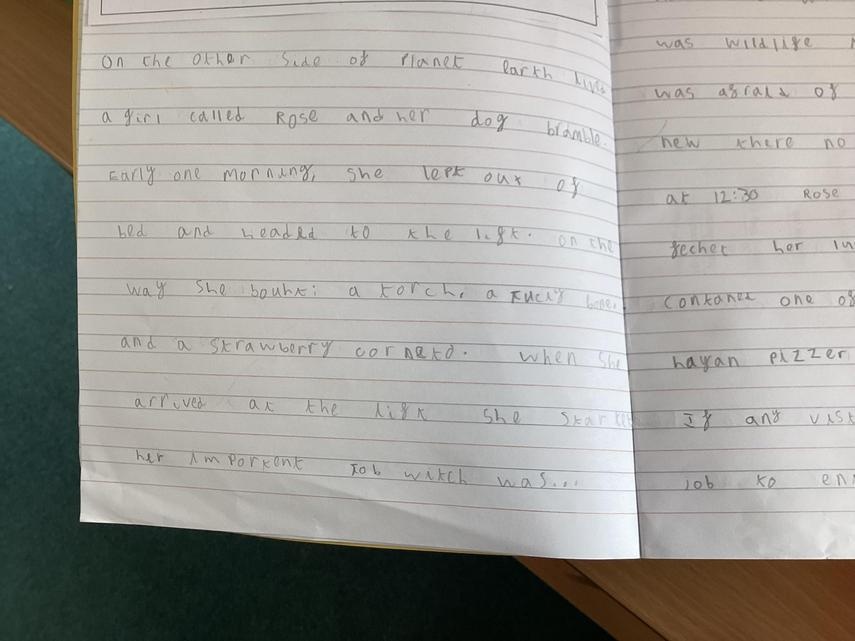 On the other side of Planet Earth lives
a girl called Rose and her dog bramble.
Early one morning, she lept out of
bed and headed to the lift. on the
way she bouht: a torch, a bone,
and a strawberry corneto. when she
arrived at the lift she start
her importent Job witch was...
was wildlife
was afraid of
new there no
at 12:30 Rose
fechet her
contaned one of
hayan pizzer
If any visit
job to en